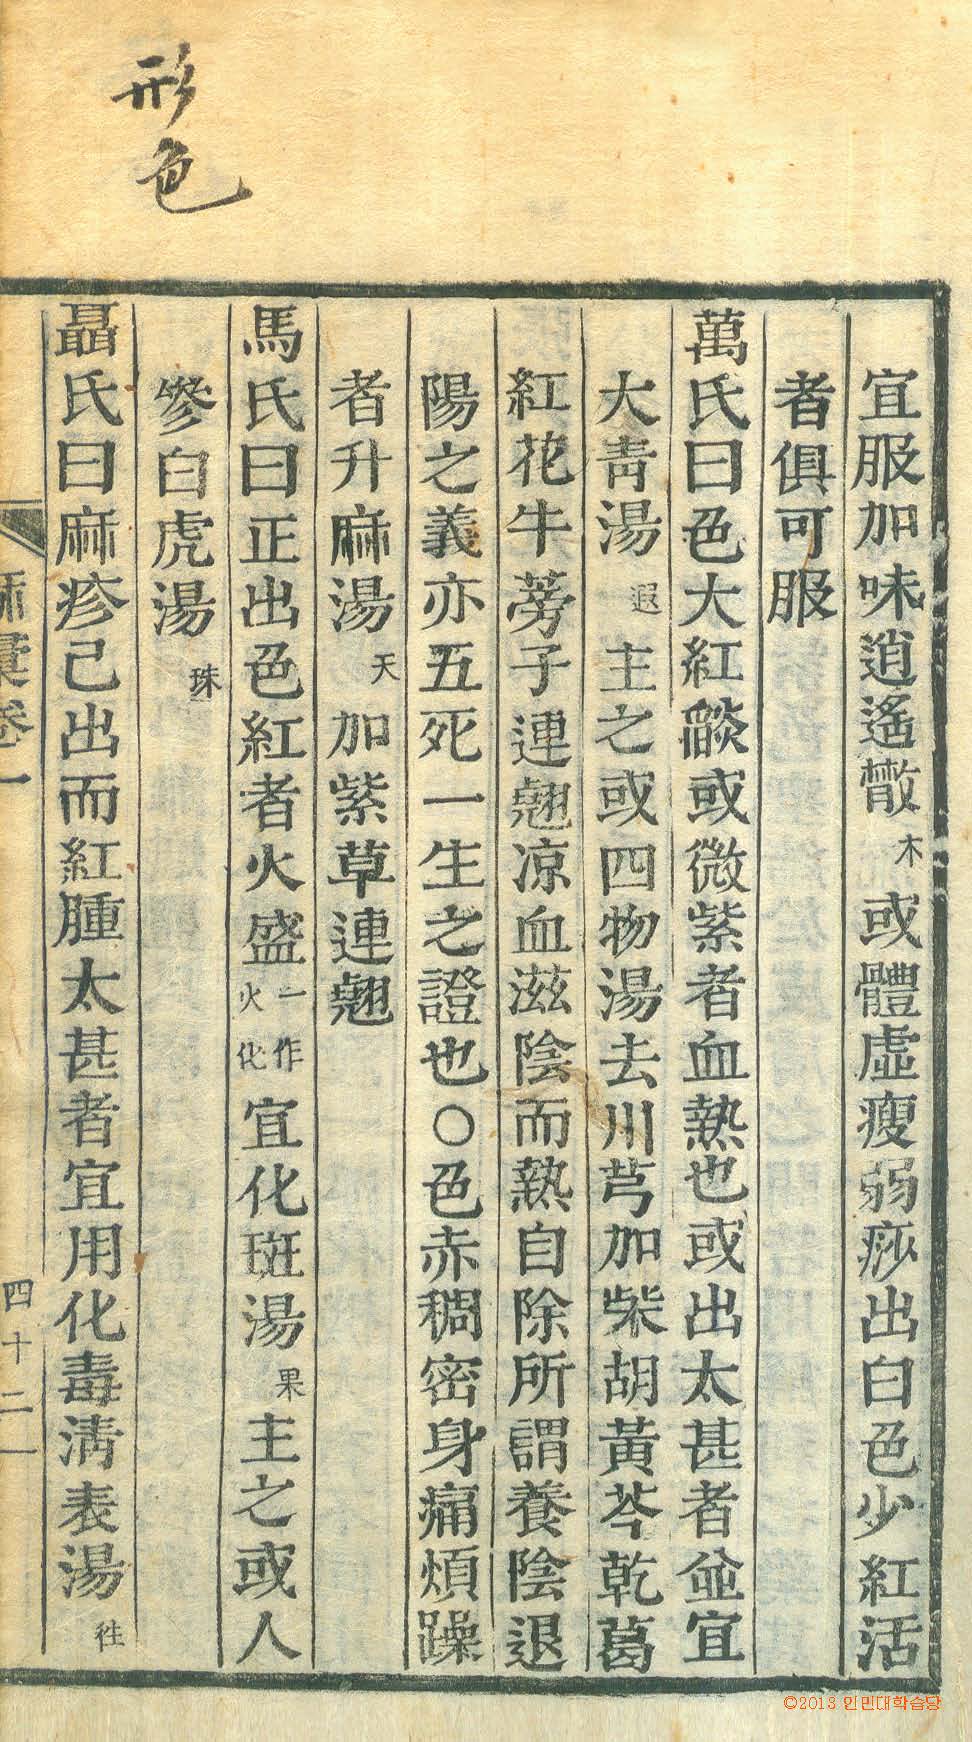 形色
宜服加味逍遙散木或體虛瘦弱痧出白色少紅活
者俱可服
萬氏曰色大紅燄或微紫者血熱也或出太甚者並宜
大靑湯退主之或四物湯去川芎加柴胡黃芩乾葛
紅花牛蒡子連翹凉血滋陰而熱自除所謂養陰退
陽之義亦五死一生之證也○色赤稠密身痛煩躁
者升麻湯天加紫草連翹
馬氏曰正出色紅者火盛一作火化宜化斑湯果主之或人
參白虎湯珠
聶氏曰麻疹已出而紅腫太甚者宜用化毒淸表湯徃
麻彙卷一
四十二
©2013 인민대학습당